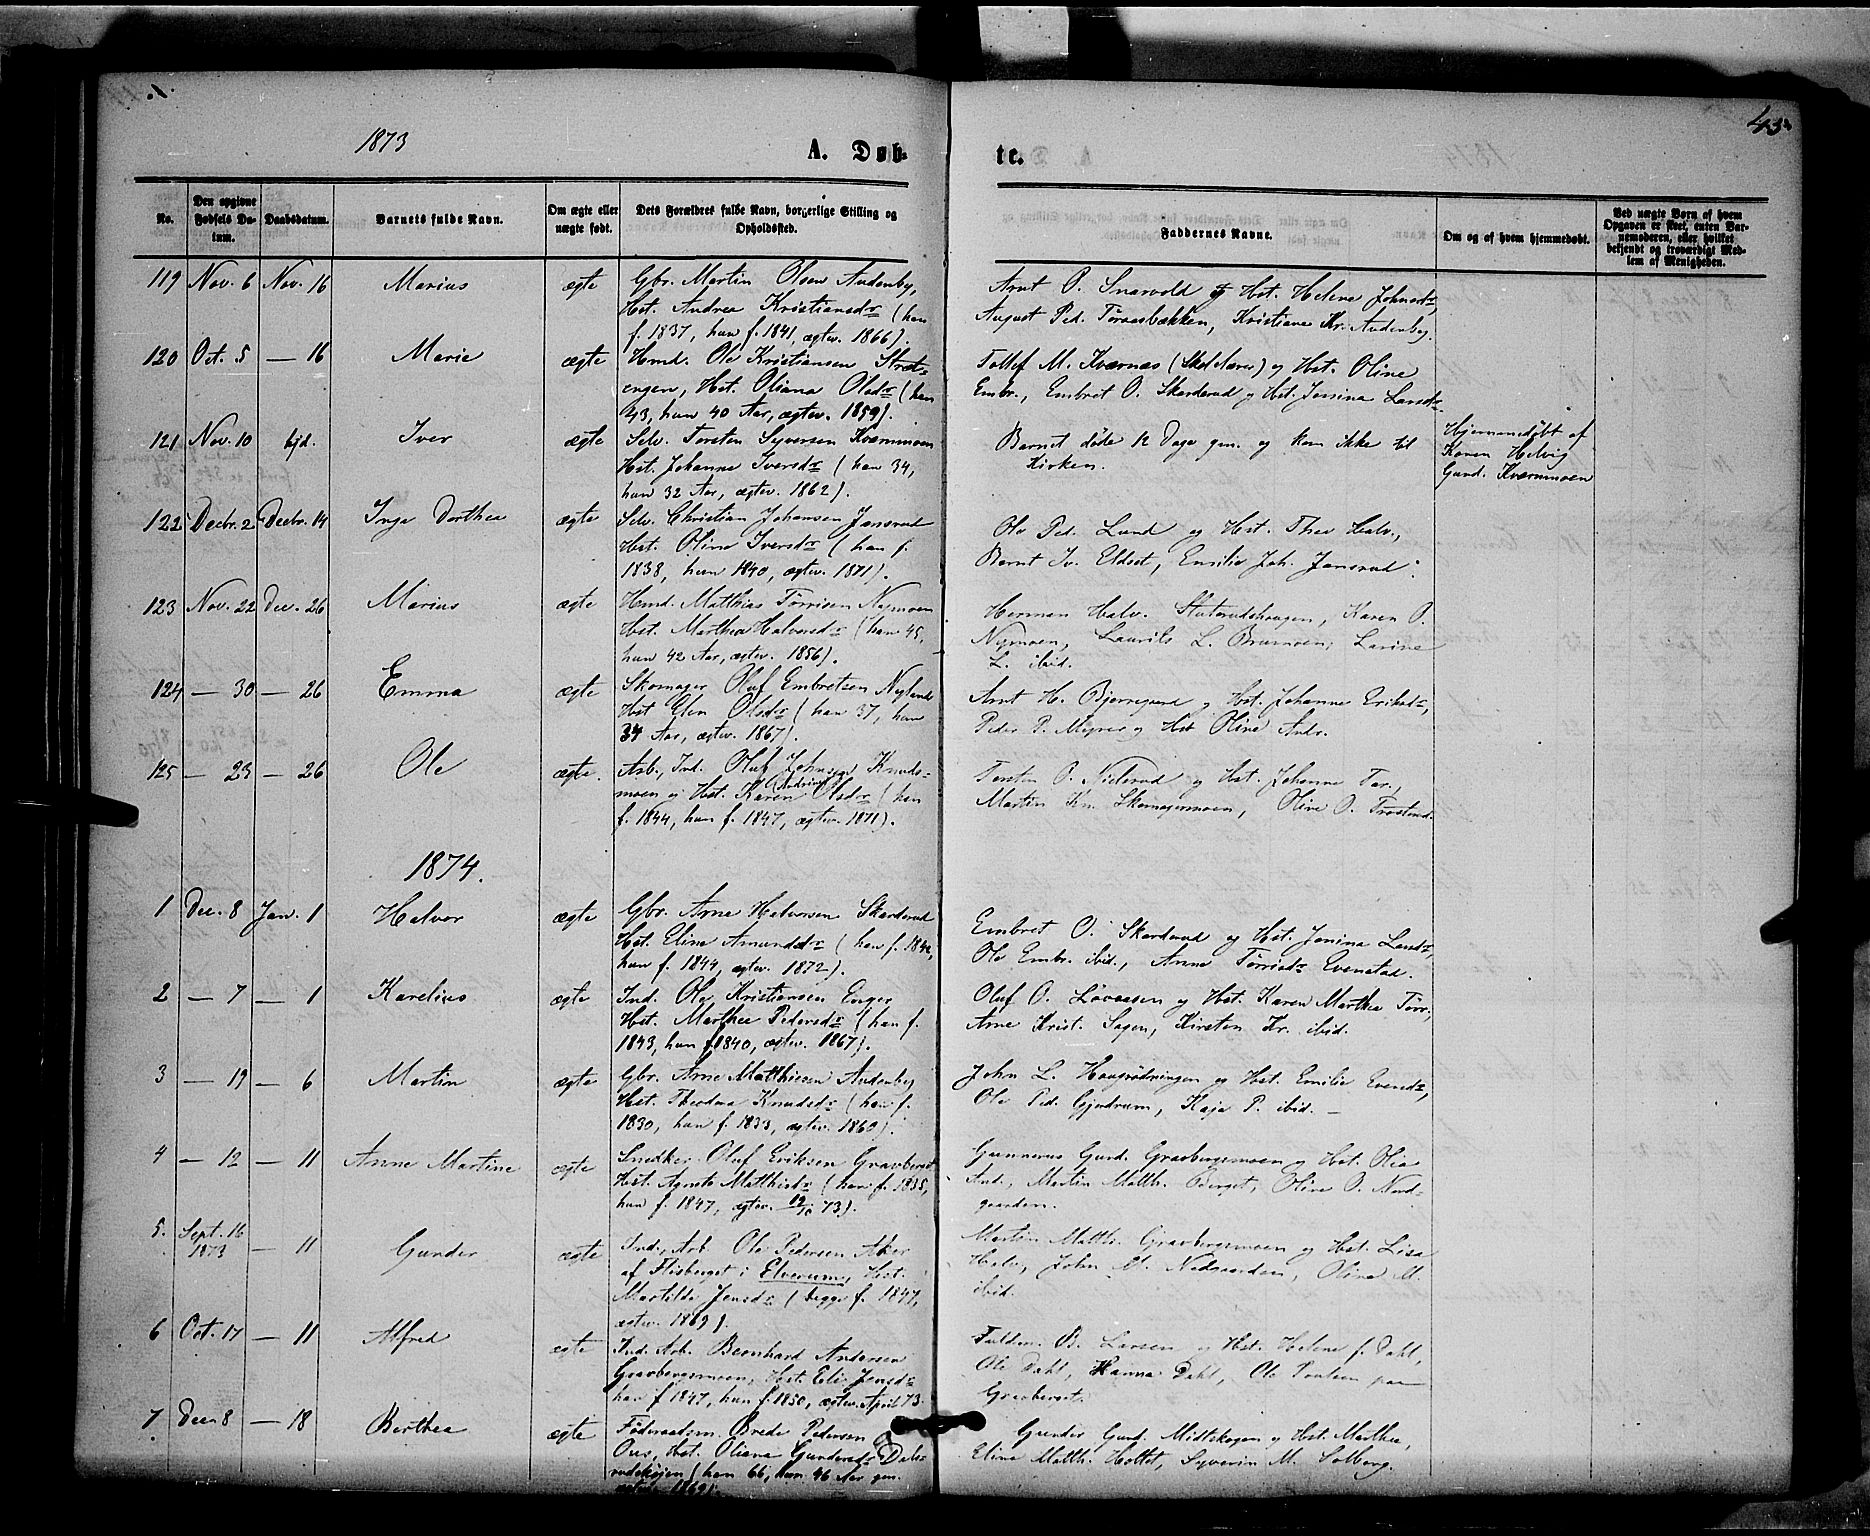 1873
A. Døb-
te.
43
No.
Den opgivne Fødsels Datum.
Daabsdatum.
Barnets fulde Navn.
Om ægte eller uægte født.
Dets Forældres fulde Navn, borgerlige Stilling og Opholdssted.
Faddernes Navne.
Om og af hvem hjemmedøbt.
Ved uægte Børn af hvem Opgaven er skeet, enten Barnemoderen, eller hvilket bekjendt og troværdigt Medlem af Menigheden.
119 Nov. 6 Nov. 16 Marius ægte Gbr. Martin Olsen Audenby,
Hst. Andrea Kristiansdr (han
f. 1837, hun f. 1841, ægtev. 1866).
Arnt O. Snarvold og Hst. Helene Johnsdr,
August Ped. Kristiane Kr. Audenby.
120 Oct. 5 — 16 Marie ægte Hmd. Ole Kristiansen
engen, Hst. Oliana Olsdr (han
43, hun 40 Aar, ægtev. 1859).
Tollef M. Kværnæs og Hst. Oline
Embr., Embret O. Skarderud og Hst. Jonina Larsdr.
121 Nov. 10 hjd. Iver ægte Selv. Torsten Syversen Kværnmoen
Hst. Johanne Iversdr (han 34,
hun 32 Aar, ægtev. 1862).
Barnet døde 12 Dage gm. og kom ikke til
Kirken.
Hjemmedøbt af
Karen Helvig
Gund. Kværnmoen
122 Decbr. 2 Decbr. 14 Inga Dorthea ægte Selv. Christian Johansen Jansrud
Hst. Oline Iversdr (han f.
1838, hun 1840, ægtev. 1871).
Ole Ped. Lund og Hst. Thea Halv.,
Bernt Iv. Eldset, Emilie Joh. Jansrud.
123 Nov. 22 Dec. 26 Marius ægte Hmd. Matthias Tørrisen Nymoen
Hst. Marthea Halvorsdr (han 45,
hun 42 Aar, ægtev. 1856).
Herman Halv. Karen O.
Nymoen, Laurits L. Brumoen, Larine
L. ibid.
124 — 30 — 26 Emma ægte Skomager Oluf Embretsen Nyland
Hst Elen Olsdr (han 37, hun
34 Aar, ægtev. 1867).
Arnt H. Bjørnegaard og Hst. Johanne Eriksdr,
Peder P. Myrer og Hst Oline Andr.
125 — 23 — 26 Ole ægte. Arb., Ind. Oluf Johnsen Knuds-
moen og Hst. Karen Olsdr (han
f. 1844, hun f. 1847, ægtev. 1871).
Torsten O. og Hst. Johanne Tor.,
Martin Kn. Skomagermoen, Oline O.
1874.
1 Dec. 8 Jan. 1 Halvor ægte Gbr. Arne Halvorsen Skarderud
Hst. Eline Amundsdr (han f.
hun f. 1844, ægtev. 1872).
Embret O. Skarderud og Hst. Jonina Larsdr,
Ole Embr. ibid., Anne Tørrisdr Evenstad.
2 — 7 — 1 Karelius ægte Ind. Ole Kristiansen Enger
Hst. Marthea Pedersdr (han f.
1843, hun f. 1840, ægtev. 1867).
Oluf O. Løvaasen og Hst. Karen Marthea Tørr.,
Arne Krist. Sagen, Kirsten Kr. ibid.
3 — 19 — 6 Martin ægte Gbr. Arne Matthiesen Audenby
Hst. Theodora Knudsdr (han f.
1830, hun f. 1833, ægtev. 1860).
John L. Haugsødningen og Hst. Emilie Evensdr,
Ole Ped. Gjerdrum, Kaja P. ibid. —
4 — 12 — 11 Anne Martine ægte Snedker Oluf Eriksen Gravberget
Hst. Agnete Matthisdr (han f. 1835,
hun f. 1847, ægtev. 73).
Gunnerus Gund. Gravbergsmoen og Hst. Olia
And., Martin Matth. Berget, Oline O. Nord-
gaarden.
5. Sept. 16
1873 — 11 Gunder ægte Ind., Arb. Ole Pedersen Aker
af Flisberget i Elverum, Hst.
Martilde Jensdr (begge f. 1847,
ægtev. 1869).
Martin Matth. Gravbergsmoen og Hst. Lisa
Halv., John M. Nedgaarden, Oline M.
ibid.
6 Oct. 17 — 11 Alfred ægte Ind. Arb. Bernhard Andersen
Gravbergsmoen, Hst. Eli Jensdr
han f 1847, hun f. 1850, ægtev. April 73.
B. Larsen og Hst. Helene f. Dahl,
Ole Dahl, Hanna Dahl, Ole Paulsen paa
Gravberget.
7. Dec. 8 — 18 Berthea ægte Føderaadsm. Brede Pedersen
Ous, Hst. Oliana Gundersdr
(han 66, hun 46 Aar gm.
ægtev. 1869).
Gunder Gund. Midtskogen og Hst. Marthea,
Eline Matth. Holtet, Syverin M. Solberg.